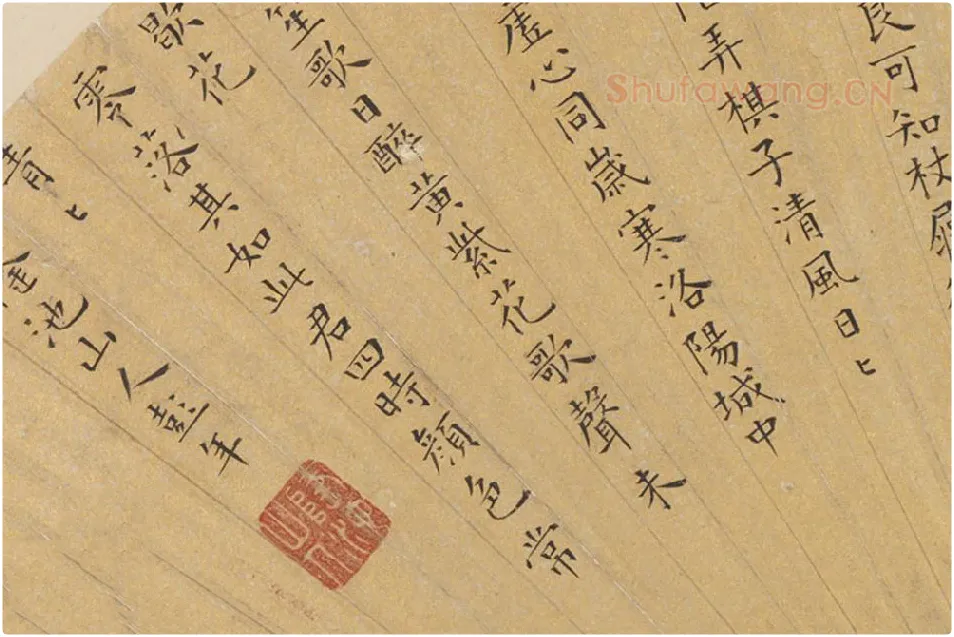 良可知杖
弄棋子清風日々
虛心同歲寒洛陽城中
笙歌日醉黃紫花歌聲未
歇花
零落其如此君四時顏色常
青々
池山人彭年
Shufawang.CN